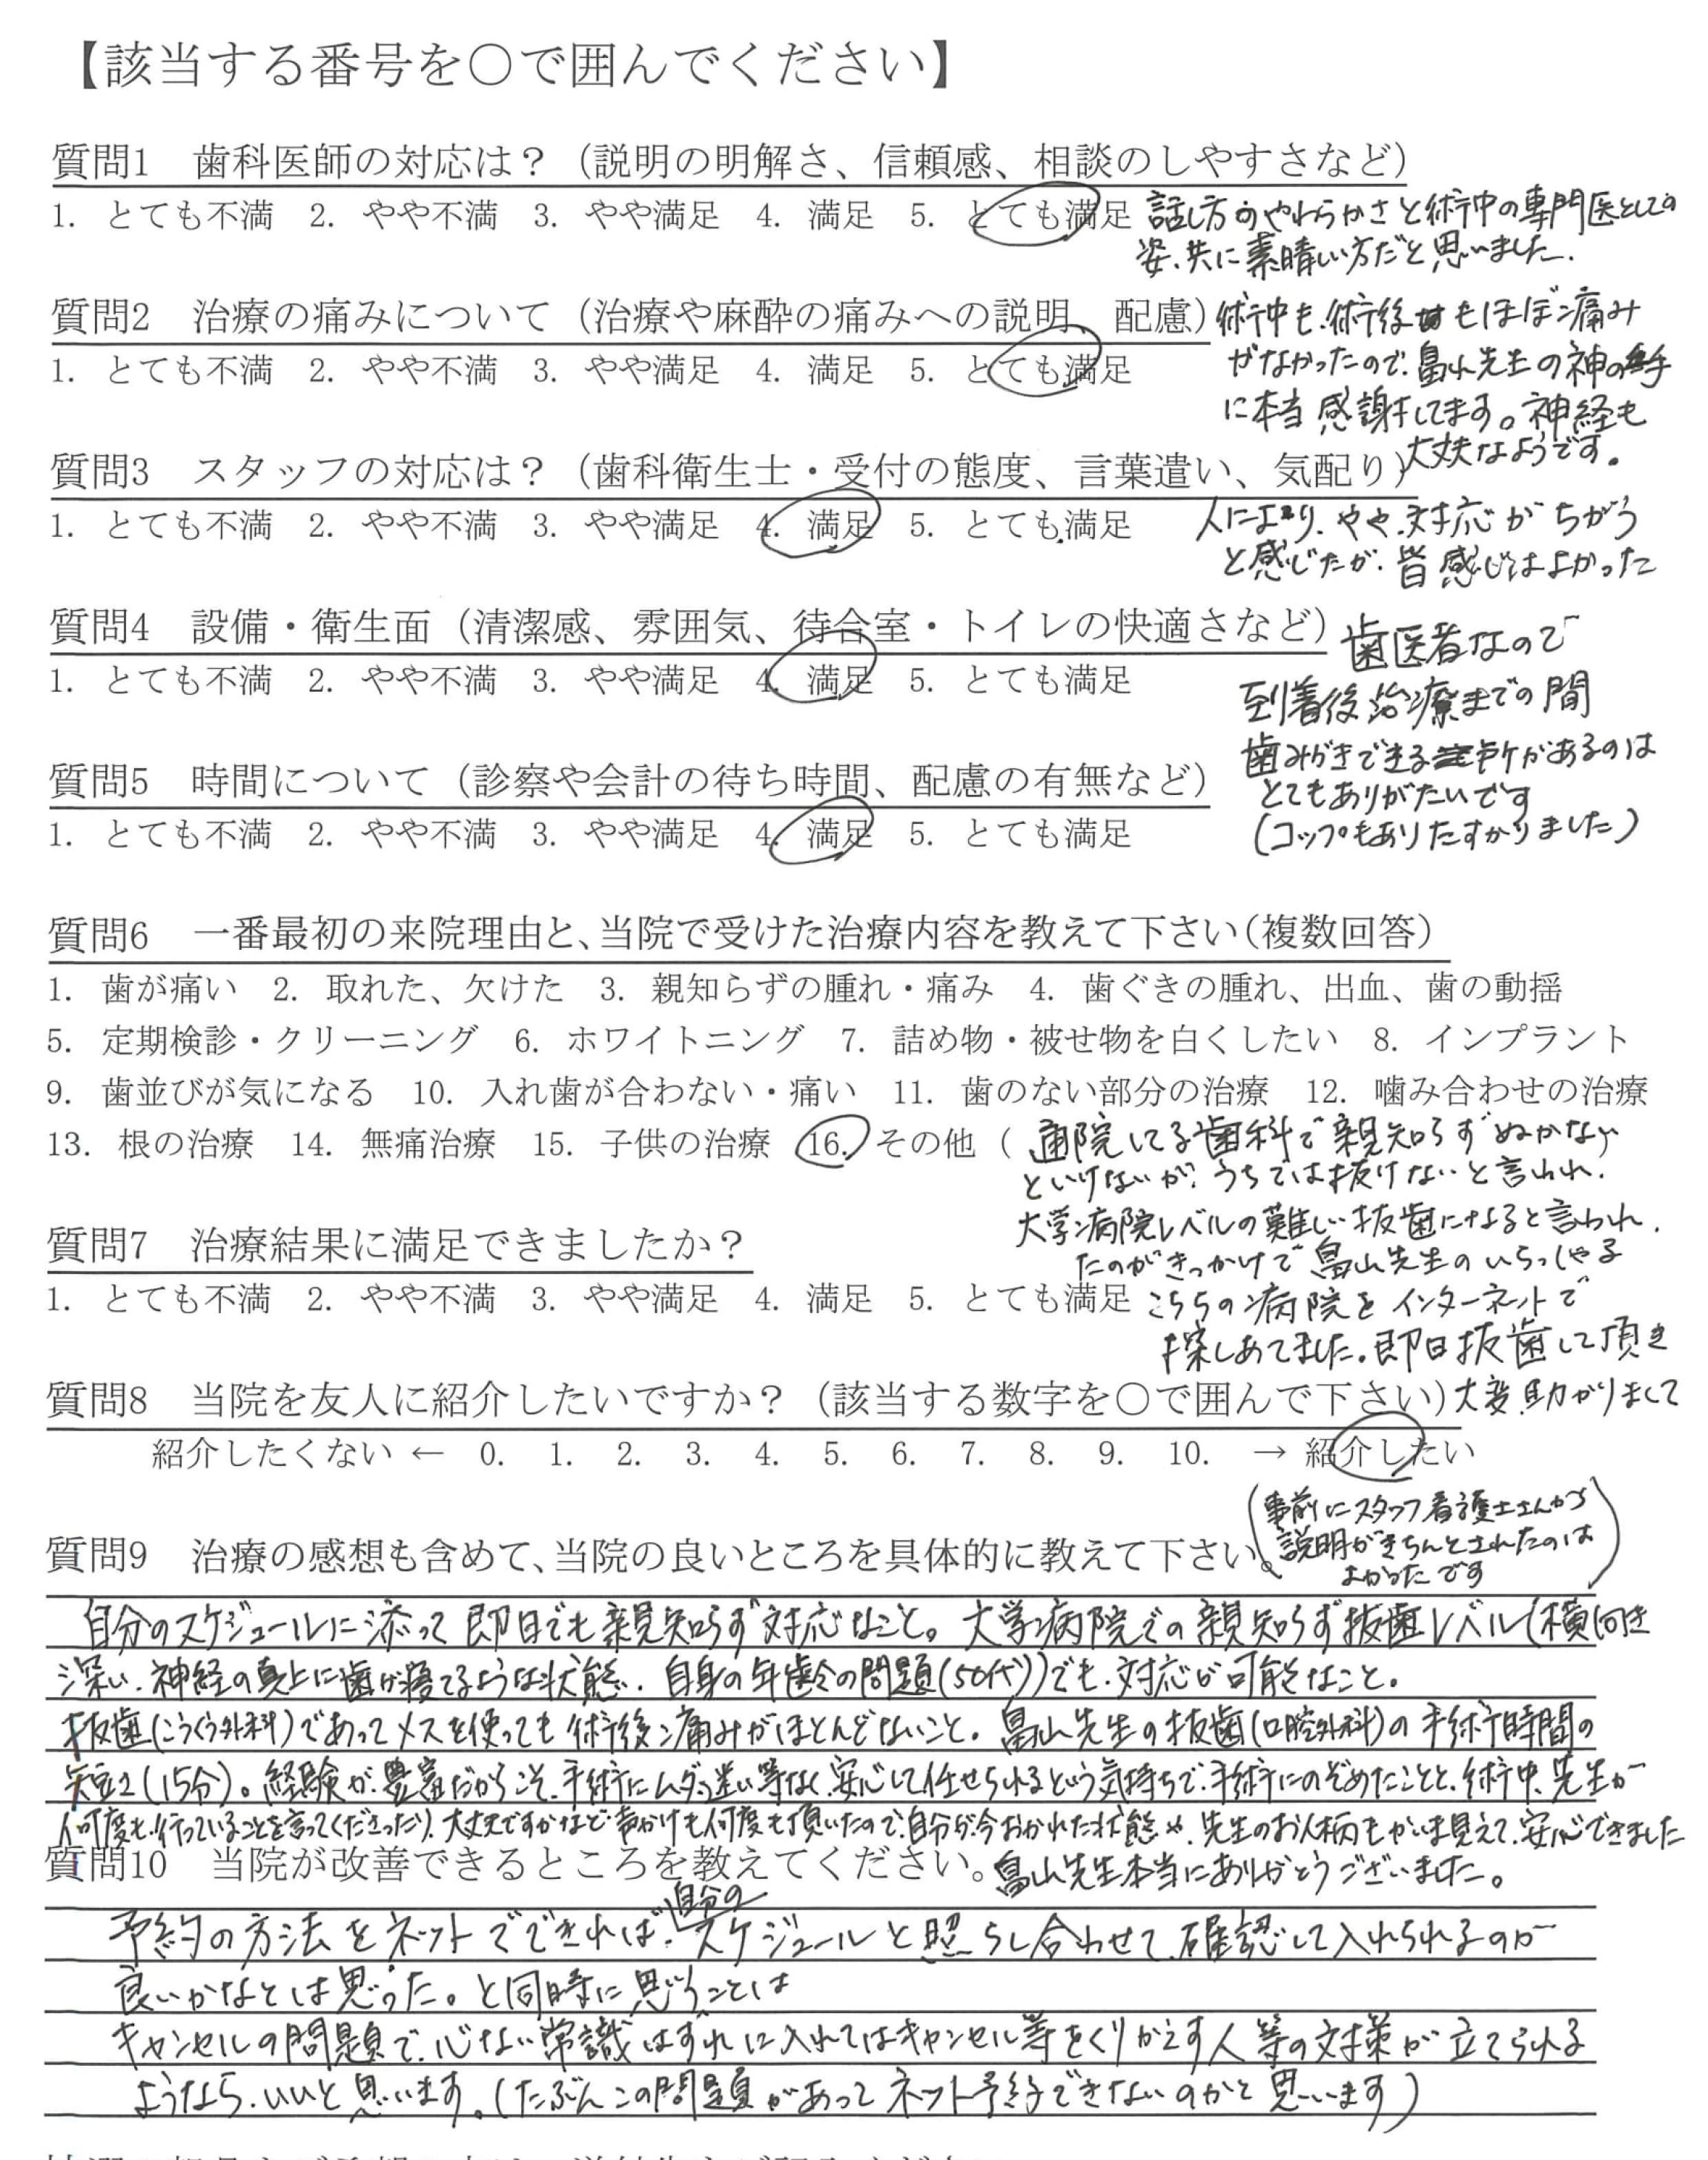 【該当する番号を○で囲んでください】
質問1　歯科医師の対応は？（説明の明解さ、信頼感、相談のしやすさなど）
1. とても不満　2. やや不満　3. やや満足　4. 満足　5. とても満足
話し方のやわらかさと術中の専門医としての
姿、共に素晴しい方だと思いました。
質問2　治療の痛みについて（治療や麻酔の痛みへの説明、配慮）
1. とても不満　2. やや不満　3. やや満足　4. 満足　5. とても満足
術中も、術後もほぼ痛み
がなかったので、畠山先生の神の手
に本当感謝してます。神経も
大丈夫なようです。
質問3　スタッフの対応は？（歯科衛生士・受付の態度、言葉遣い、気配り）
1. とても不満　2. やや不満　3. やや満足　4. 満足　5. とても満足
人により、やや、対応がちがう
と感じたが、皆感じはよかった
質問4　設備・衛生面（清潔感、雰囲気、待合室・トイレの快適さなど）
1. とても不満　2. やや不満　3. やや満足　4. 満足　5. とても満足
歯医者なので
到着後治療までの間
歯みがきできる所があるのは
とてもありがたいです
（コップもありたすかりました）
質問5　時間について（診察や会計の待ち時間、配慮の有無など）
1. とても不満　2. やや不満　3. やや満足　4. 満足　5. とても満足
質問6　一番最初の来院理由と、当院で受けた治療内容を教えて下さい（複数回答）
1. 歯が痛い　2. 取れた、欠けた　3. 親知らずの腫れ・痛み　4. 歯ぐきの腫れ、出血、歯の動揺
5. 定期検診・クリーニング　6. ホワイトニング　7. 詰め物・被せ物を白くしたい　8. インプラント
9. 歯並びが気になる　10. 入れ歯が合わない・痛い　11. 歯のない部分の治療　12. 噛み合わせの治療
13. 根の治療　14. 無痛治療　15. 子供の治療　16. その他（通院してる歯科で親知らずぬかない）
といけないが、うちでは抜けないと言われ、
大学病院レベルの難しい抜歯になると言われ、
たのがきっかけで畠山先生のいらっしゃる
こちらの病院をインターネットで
探しあてました。即日抜歯して頂き
大変助かりまして
質問7　治療結果に満足できましたか？
1. とても不満　2. やや不満　3. やや満足　4. 満足　5. とても満足
質問8　当院を友人に紹介したいですか？（該当する数字を○で囲んで下さい）
紹介したくない ← 0. 1. 2. 3. 4. 5. 6. 7. 8. 9. 10. → 紹介したい
（事前にスタッフ看護士さんから
説明がきちんとされたのは
よかったです）
質問9　治療の感想も含めて、当院の良いところを具体的に教えて下さい。
自分のスケジュールに添って即日でも親知らず対応なこと。大学病院での親知らず抜歯レベル（横向き
深い、神経の真上に歯が寝てるような状態、自身の年齢の問題（50代））でも、対応が可能なこと。
抜歯（こうくう外科）であってメスを使っても術後痛みがほとんどないこと。畠山先生の抜歯（口腔外科）の手術時間の
短さ（15分）。経験が豊富だからこそ、手術にムダ、迷い等なく、安心して任せられるという気持ちで、手術にのぞめたことと、術中、先生が
何度も、行っていることを言ってくださったり、大丈夫ですかなど声かけも何度も頂いたので、自分が今おかれた状態や、先生のお人柄もかいま見えて、安心できました
畠山先生本当にありがとうございました。
質問10　当院が改善できるところを教えてください。
予約の方法をネットでできれば、自分のスケジュールと照らし合わせて、確認して入れられるのが
良いかなとは思った。と同時に思うことは
キャンセルの問題で、心ない常識はずれに入れてはキャンセル等をくりかえす人等の対策が立てられる
ようなら、いいと思います。（たぶんこの問題があってネット予約できないのかと思います）